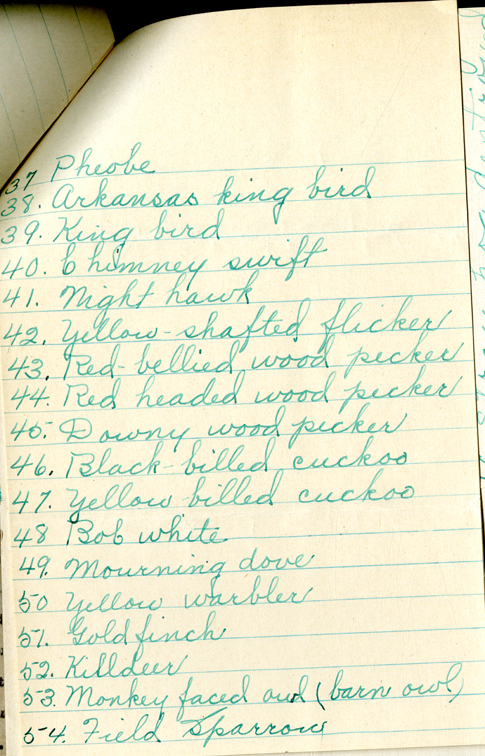 37 Pheobe
38. Arkansas king bird
39. King bird
40. Chimney swift
41. Night hawk
42. Yellow-shafted flicker
43. Red-bellied wood pecker
44. Red headed wood pecker
45. Downy wood pecker
46. Black-billed cuckoo
47. Yellow billed cuckoo
48 Bob white
49. Mourning dove
50 Yellow warbler
51. Goldfinch
52. Killdeer
53. Monkey faced owl (barn owl)
54. Field Sparrow